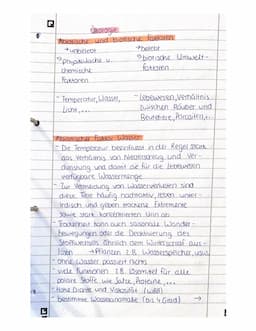 Ökologie
Abiotische und biotische Faktoren
→ unbelebt
→ belebt
→ physikalische u. chemische Faktoren
→ biotische Umwelt-
faktoren
- Temperatur, Wasser,
Licht, ...
- Lebewesen, Verhältnis
zwischen Räuber und
Beutetiere, Parasiten, ...
Abiotischer Faktor Wasser
- Die Temperatur beeinflusst in der Regel stark
das Verhältnis von Niederschlag und Ver-
dunstung und damit die für die Lebewesen
verfügbare Wassermenge
- Zur Vermeidung von Wasserverlusten sind
viele Tiere häufig nachtaktiv, leben unter-
irdisch und geben trockene Extremente
sowie stark konzentrierten Urin ab
- Trockenheit kann auch saisonale Wander-
bewegungen oder die Deaktivierung des
Stoffwechsels ähnlich dem Winterschlaf aus-
lösen → Pflanzen z.B. Wasserspeicher, usw.
- Ohne Wasser passiert nichts
- viele Funktionen z.B. Lösemittel für alle
polare Stoffe, wie Salze, Proteine, ...
- hohe Dichte und Viskosität
- bestimmte Wasseranomalie (bis 4 Grad) →